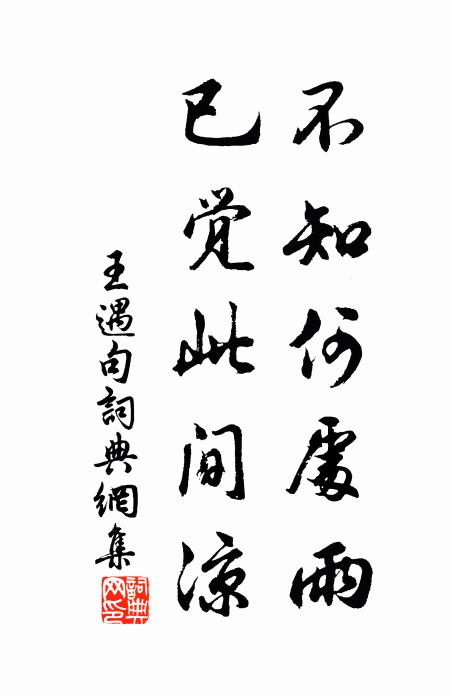 不知何處雨
已觉此间凉
王遇句詞典網集
詞典网印